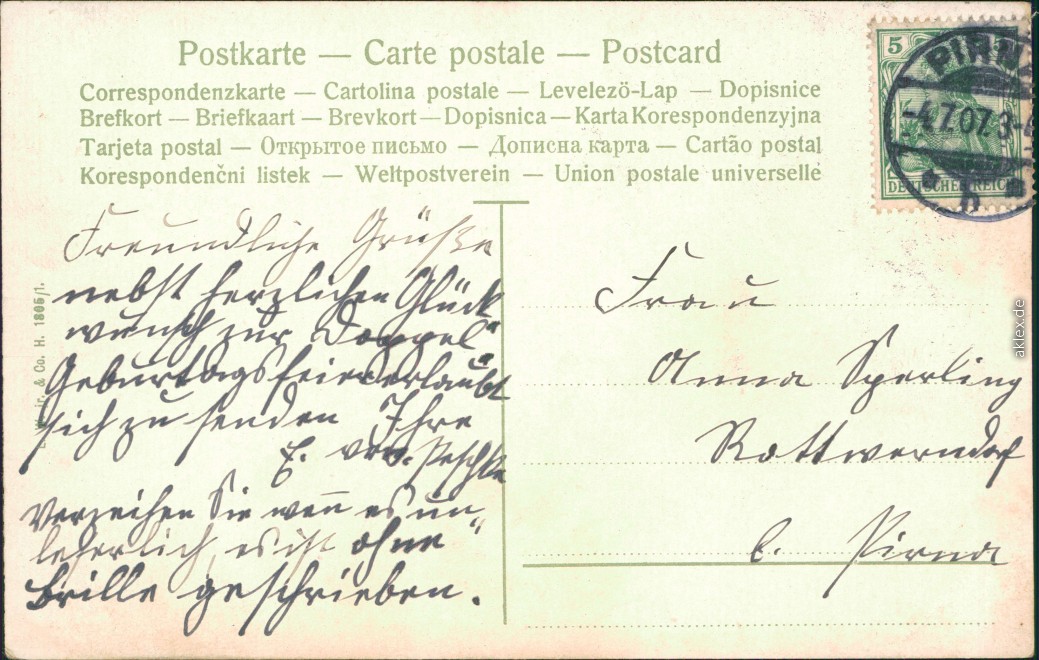 Postkarte — Carte postale — Postcard
Correspondenzkarte — Cartolina postale — Levelezö-Lap — Dopisnice
Brefkort — Briefkaart — Brevkort — Dopisnica — Karta Korespondenzyjna
Tarjeta postal — Открытое письмо — Дописна карта — Cartão postal
Korespondenčni listek — Weltpostverein — Union postale universelle
5
PIRN
-4.7.07.3-
b
DEUTSCHES REICH
Freundliche Grüße
nebst herzlichen Glück
wunsch zur Doppel"
Geburtagsfeier erlaubt
sich zu senden Ihre
E. von Peschke
Verzeihen Sie wen̄ es un"
leserlich, es ist ohne
Brille geschrieben.
Frau
Anna Sperling
Rottwerndorf
b. Pirna
& Co. H. 1805/1.
aklex.de